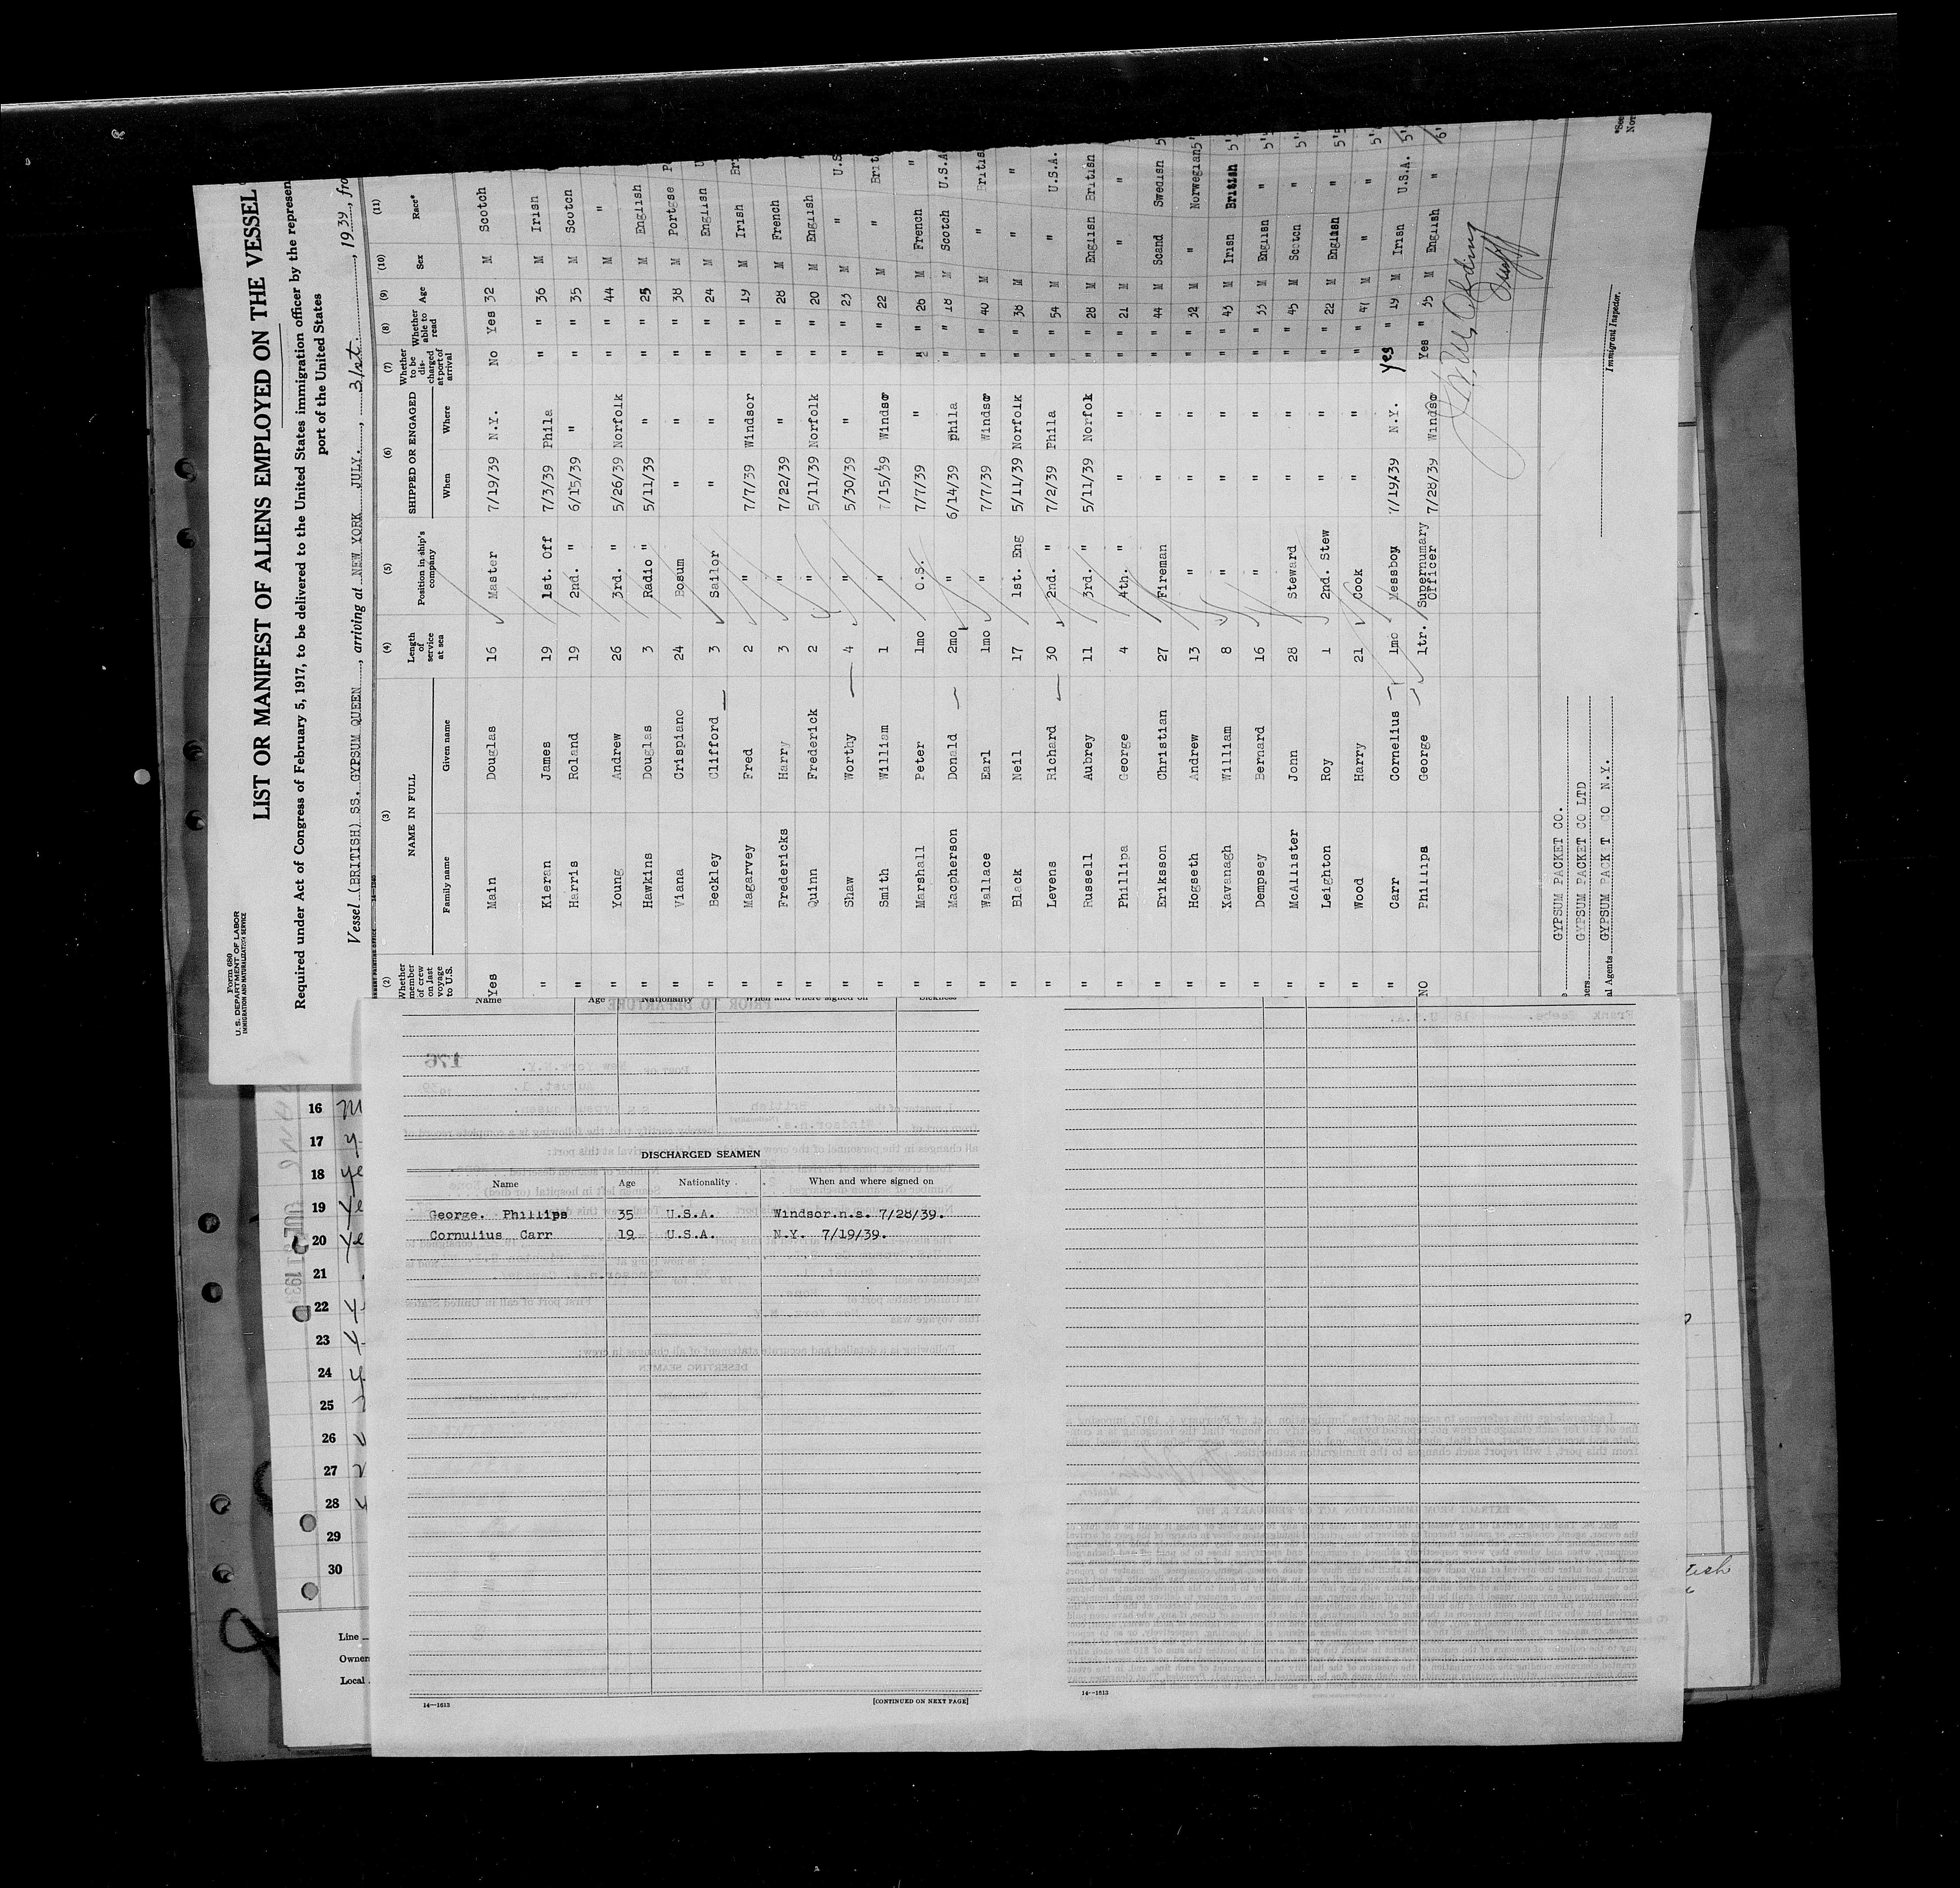 Form 680
U.S. DEPARTMENT OF LABOR
IMMIGRATION AND NATURALIZATION SERVICE
LIST OR MANIFEST OF ALIENS EMPLOYED ON THE VESSEL
Required under Act of Congress of February 5, 1917, to be delivered to the United States immigration officer by the represen
port of the United States
Vessel (BRITISH) SS. GYPSUM QUEEN, arriving at NEW YORK JULY. 31st, 1939, fro
(2) (3) (4) (5) (6) (7) (8) (9) (10) (11)
Whether member of crew on last voyage to U.S. NAME IN FULL Family name Given name Length of service at sea Position in ship's company SHIPPED OR ENGAGED When Where Whether to be discharged at port of arrival Whether able to read Age Sex Race*
Yes Main Douglas 16 Master 7/19/39 N.Y. No Yes 32 M Scotch
" Kieran James 19 1st. Off 7/3/39 Phila " " 36 M Irish
" Harris Roland 19 2nd. " 6/15/39 " " " 35 M Scotch
" Young Andrew 26 3rd. " 5/26/39 Norfolk " " 44 M "
" Hawkins Douglas 3 Radio " 5/11/39 " " " 25 M English
" Viana Crispiano 24 Bosum " " " " 38 M Portgse P
" Beckley Clifford 3 Sailor " " " " 24 M English U
" Magarvey Fred 2 " 7/7/39 Windsor " " 19 M Irish Br
" Fredericks Harry 3 " 7/22/39 " " " 28 M French
" Quinn Frederick 2 " 5/11/39 Norfolk " " 20 M English
" Shaw Worthy 4 " 5/30/39 " " " 23 M " U.S
" Smith William 1 " 7/15/39 Windsor " " 22 M " Brit
" Marshall Peter 1mo O.S. 7/7/39 " " " 26 M French "
" Macpherson Donald 2mo " 6/14/39 phila " " 18 M Scotch U.S.A
" Wallace Earl 1mo " 7/7/39 Windsor " " 40 M " Britis
" Black Neil 17 1st. Eng 5/11/39 Norfolk " " 38 M " "
" Levens Richard 30 2nd. " 7/2/39 Phila " " 54 M " U.S.A.
" Russell Aubrey 11 3rd. " 5/11/39 Norfok " " 28 M English British
" Phillipa George 4 4th. " " " " " 21 M " "
" Erikson Christian 27 Fireman " " " " 44 M Scand Swedish 5
" Hogseth Andrew 13 " " " " " 32 M " Norwegian 5'
" Kavanagh William 8 " " " " " 43 M Irish British 5'
" Dempsey Bernard 16 " " " " " 33 M English " 5'
" McAllister John 28 Steward " " " " 45 M Scotch " 5'
" Leighton Roy 1 2nd. Stew " " " " 22 M English " 5'
" Wood Harry 21 Cook " " " " 47 M " " 5'
" Carr Cornelius 1mo Messboy 7/19/39 N.Y. Yes " 19 M Irish U.S.A. 5'
NO Phillips George 1tr. Supernumary Officer 7/28/39 Windso Yes " 35 M English " 6'
GYPSUM PACKET CO.
ners GYPSUM PACKET CO LTD
al Agents GYPSUM PACKET CO N.Y.
Immigrant Inspector.
*See
Name Age Nationality When and where signed on Sickness
DISCHARGED SEAMEN
Name Age Nationality When and where signed on
George. Phillips 35 U.S.A. Windsor.n.s. 7/28/39.
Cornulius Carr 19 U.S.A. N.Y. 7/19/39.
14—1613
[CONTINUED ON NEXT PAGE]
14—1613
16
17
18
19
20
21
22
23
24
25
26
27
28
29
30
Line
Owner
Local